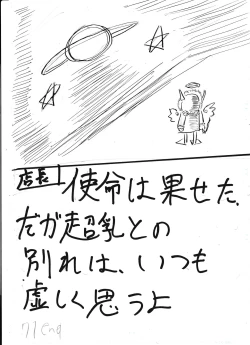 店長「使命は果せた、
だが超乳との
別れは、いつも
虚しく思うよ
7/End